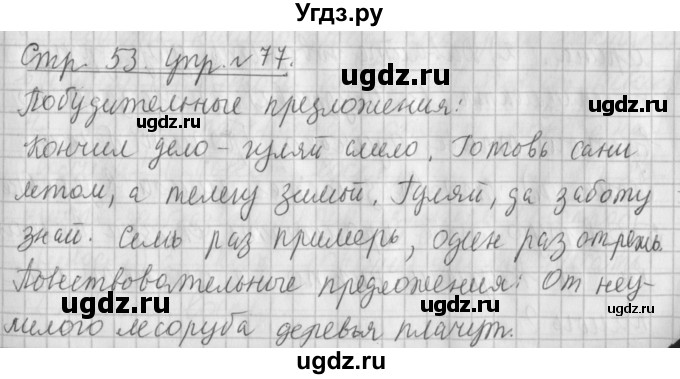 Угдз.ру
Стр. 53. упр. № 77.
ugdz.ru
Побудительные предложения:
ugdz.ru ugdz.ru
Кончил дело – гуляй смело. Готовь сани
летом, а телегу зимой. Гуляй, да заботу
ugdz.ru ugdz.ru
знай. Семь раз примерь, один раз отрежь.
Повествовательные предложения: От неу-
ugdz.ru ugdz.ru
милого лесоруба деревья плачут.
ugdz.ru